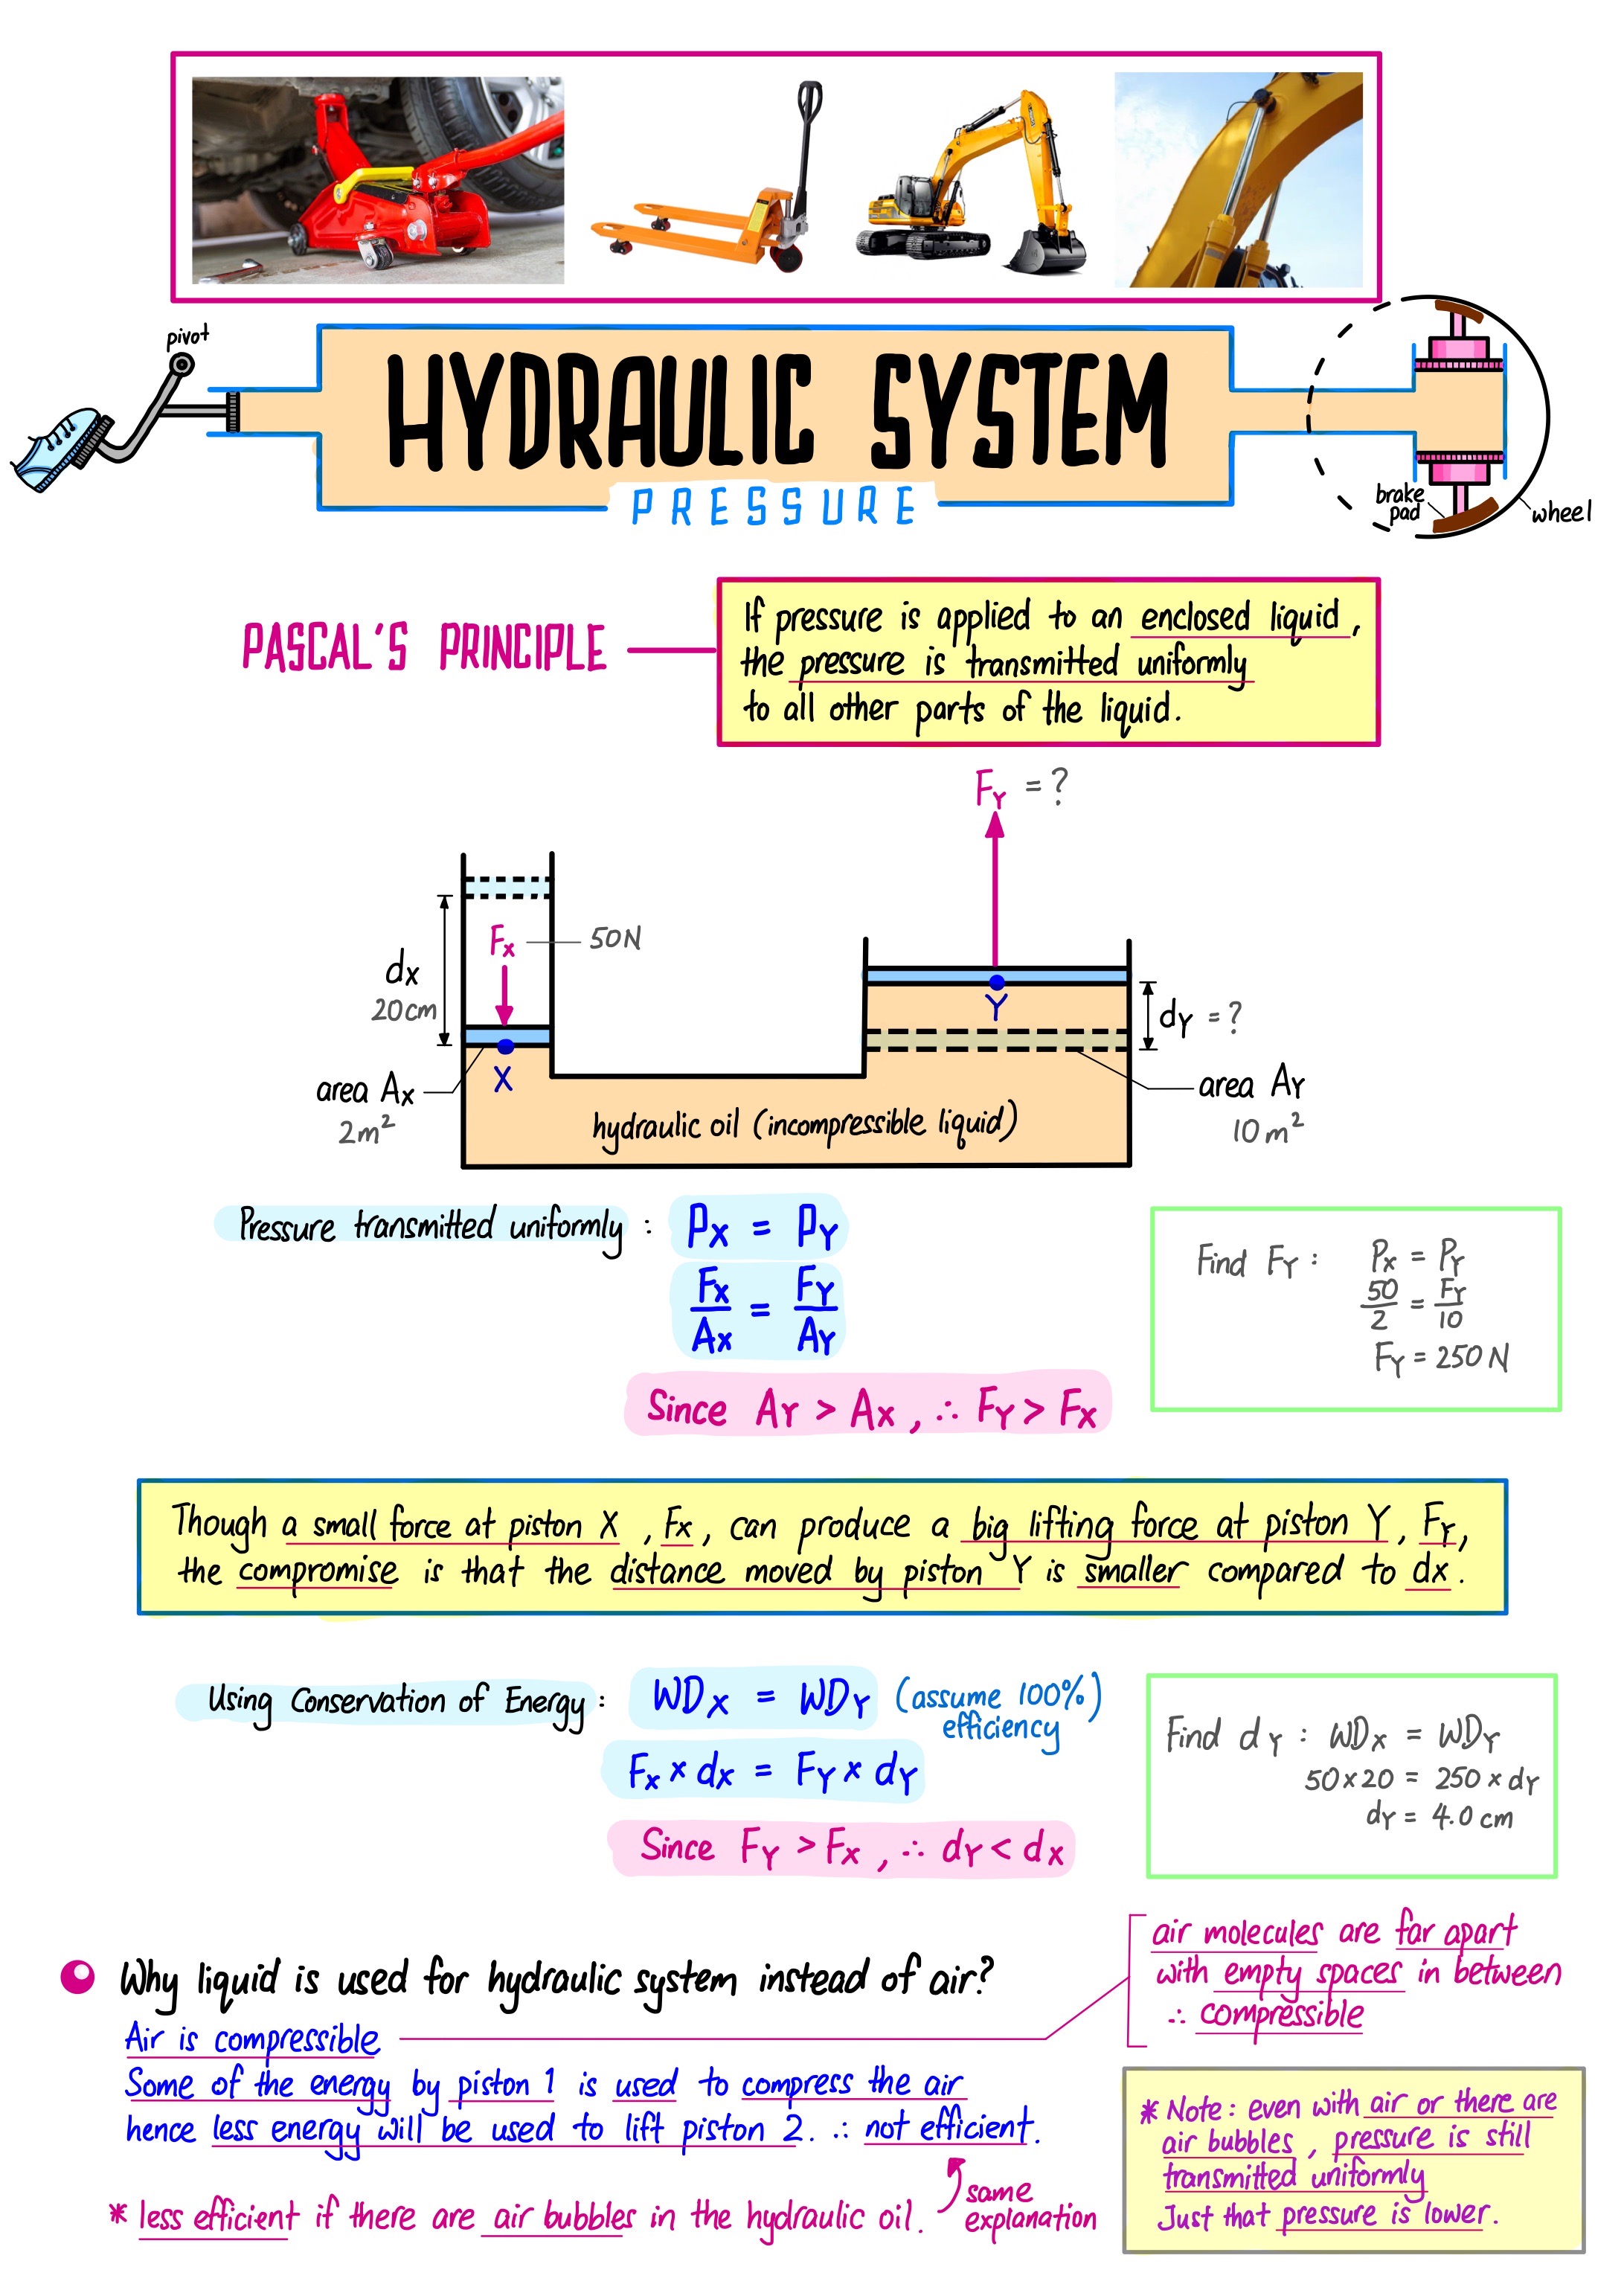 pivot
HYDRAULIC SYSTEM
PRESSURE
brake
pad
wheel
PASCAL'S PRINCIPLE
If pressure is applied to an enclosed liquid,
the pressure is transmitted uniformly
to all other parts of the liquid.
F_Y = ?
F_X
50N
d_X
20cm
Y
d_Y = ?
X
area A_X
2m²
area A_Y
10m²
hydraulic oil (incompressible liquid)
Pressure transmitted uniformly : P_X = P_Y
F_X/A_X = F_Y/A_Y
Since A_Y > A_X, ∴ F_Y > F_X
Find F_Y : P_X = P_Y
50/2 = F_Y/10
F_Y = 250 N
Though a small force at piston X, F_X, can produce a big lifting force at piston Y, F_Y,
the compromise is that the distance moved by piston Y is smaller compared to d_X.
Using Conservation of Energy : WD_X = WD_Y (assume 100%)
efficiency
F_X × d_X = F_Y × d_Y
Since F_Y > F_X, ∴ d_Y < d_X
Find d_Y : WD_X = WD_Y
50×20 = 250 × d_Y
d_Y = 4.0 cm
Why liquid is used for hydraulic system instead of air?
Air is compressible
Some of the energy by piston 1 is used to compress the air
hence less energy will be used to lift piston 2. ∴ not efficient.
* less efficient if there are air bubbles in the hydraulic oil.
same
explanation
air molecules are far apart
with empty spaces in between
∴ compressible
* Note: even with air or there are
air bubbles, pressure is still
transmitted uniformly
Just that pressure is lower.